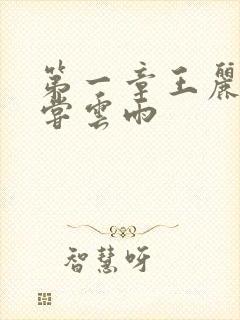 第一章王麗
嘗雲雨
智慧呀